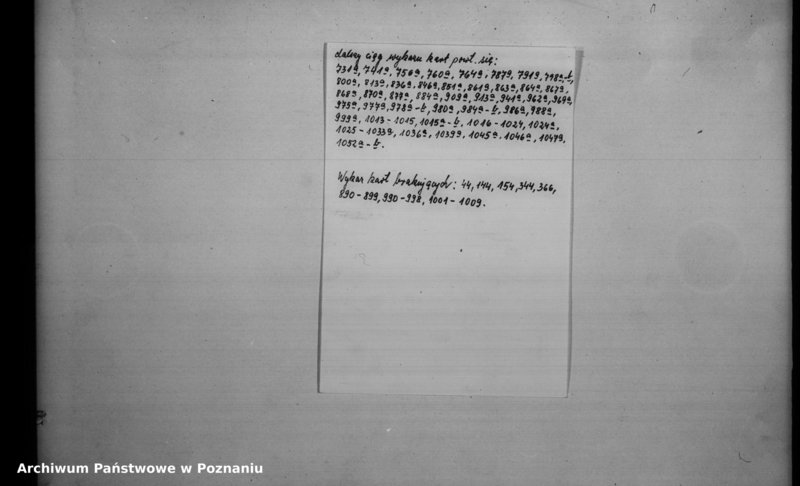 dalszy ciąg wykazu kart powt. się:
731a, 741a, 750a, 760a, 764a, 787a, 791a, 798a-b,
800a, 813a, 836a, 846a, 851a, 861a, 863a, 864a, 867a,
868a, 870a, 877a, 884a, 909a, 913a, 941a, 962a, 969a,
973a, 977a, 978a-b, 980a, 984a-b, 986a, 988a,
999a, 1013-1015, 1015a-b, 1016-1024, 1024a,
1025-1033a, 1036a, 1039a, 1045a, 1046a, 1047a,
1052a-b.
Wykaz kart brakujących: 44, 144, 154, 344, 366,
890-899, 990-998, 1001-1009.
Archiwum Państwowe w Poznaniu